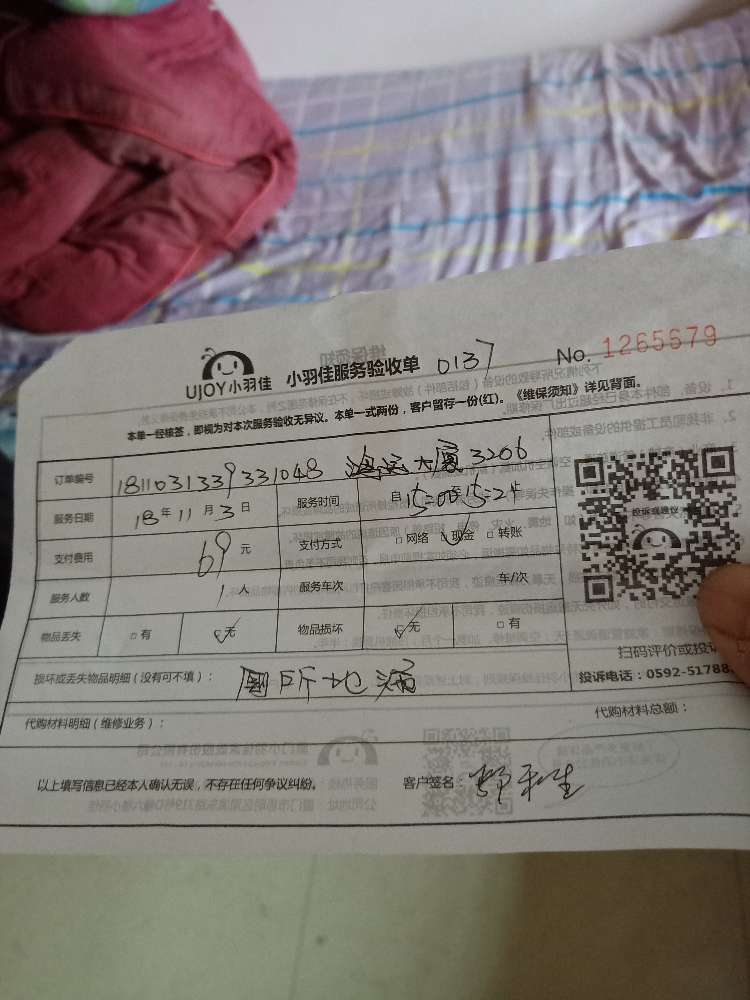 UJOY小羽佳 小羽佳服务验收单 0137 No. 1265679
本单一经核签，即视为对本次服务验收无异议。本单一式两份，客户留存一份(红)。《维保须知》详见背面。
订单编号 1811031339331048 鸿运大厦3206
服务日期 18年11月3日 服务时间 自15:00至15:24
支付费用 69元 支付方式 □网络 □现金 □转账
服务人数 1人 服务车次 车/次
物品丢失 □有 □无 物品损坏 □无 □有
投诉或建议
扫码评价或投诉
投诉电话：0592-51788
损坏或丢失物品明细（没有可不填）： 厕所地漏
代购材料明细（维修业务）： 代购材料总额：
以上填写信息已经本人确认无误，不存在任何争议纠纷。 客户签名：